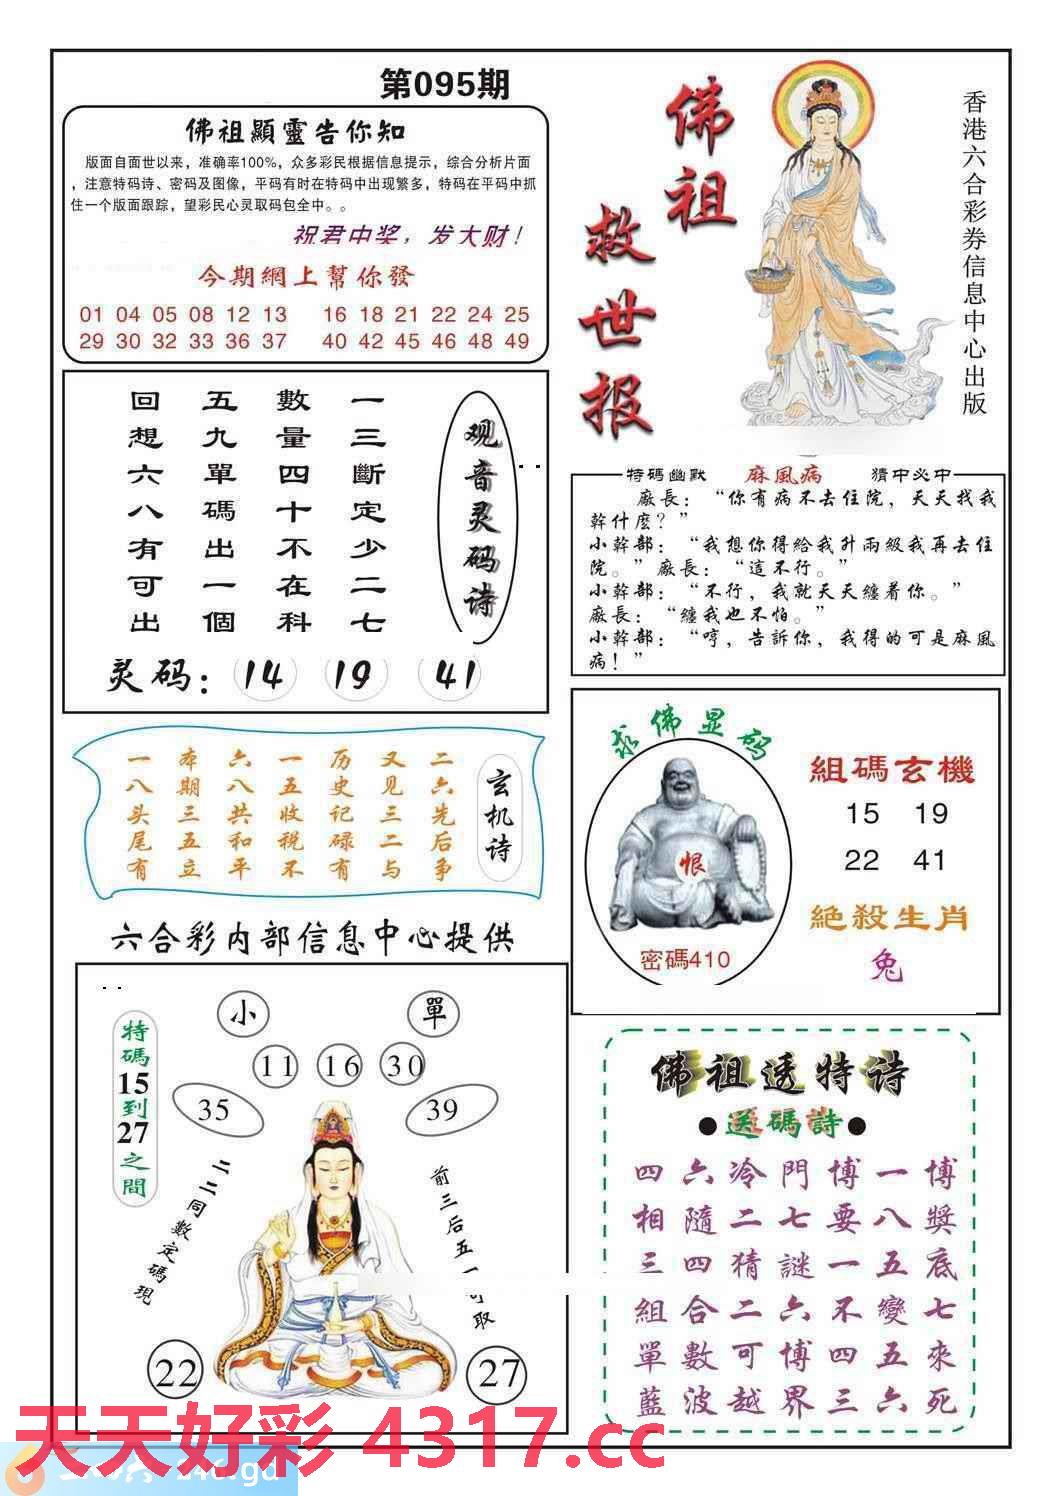 第095期
佛祖顯靈告你知
版面自面世以来，准确率100%，众多彩民根据信息提示，综合分析片面
，注意特码诗、密码及图像，平码有时在特码中出现繁多，特码在平码中抓
住一个版面跟踪，望彩民心灵取码包全中。。
祝君中奖，发大财！
今期網上幫你發
01 04 05 08 12 13 16 18 21 22 24 25
29 30 32 33 36 37 40 42 45 46 48 49
佛祖
救世报
香港六合彩券信息中心出版
观音灵码诗
一三斷定少二七
數量四十不在科
五九單碼出一個
回想六八有可出
灵码：14 19 41
特碼幽默 麻風病 猜中必中
廠長：“你有病不去住院，天天找我
幹什麽？”
小幹部：“我想你得給我升兩級我再去住
院。”廠長：“這不行。”
小幹部：“不行，我就天天纏着你。”
廠長：“纏我也不怕。”
小幹部：“哼，告訴你，我得的可是麻風
病！”
玄机诗
二六先后争
又见三二与
历史记碌有
一五收税不
六八共和平
本期三五立
一八头尾有
求佛显码
恨
密碼410
組碼玄機
15 19
22 41
絕殺生肖
兔
六合彩内部信息中心提供
小 單
11 16 30
35 39
特碼15到27之間
二二同數定碼現
前三后五一可取
22 27
佛祖透特诗
●送碼詩●
四六冷門博一博
相隨二七要八獎
三四猜謎一五底
組合二六不變七
單數可博四五來
藍波越界三六死
天天好彩 4317.cc
246.gd